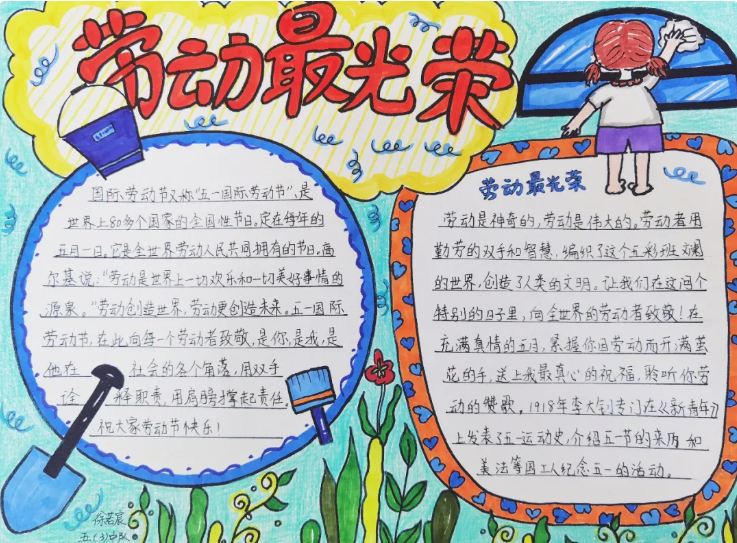 劳动最光荣
国际劳动节又称"五一国际劳动节"、是
世界上80多个国家的全国性节日。定在每年的
五月一日。它是全世界劳动人民共同拥有的节日。高
尔基说:"劳动是世界上一切欢乐和一切美好事情的
源泉。"劳动创造世界,劳动更创造未来。五一国际
劳动节,在此向每一个劳动者致敬,是你,是我,是
他在 社会的各个角落,用双手
诠 释职责,用肩膀撑起责任。
祝大家劳动节快乐!
劳动最光荣
劳动是神奇的,劳动是伟大的。劳动者用
勤劳的双手和智慧,编织了这个五彩班斓
的世界,创造了人类的文明。让我们在这个
特别的日子里,向全世界的劳动者致敬!在
充满真情的五月,紧握你因劳动而开满茧
花的手,送上我最真心的祝福,聆听你劳
动的赞歌。1918年李大钊专门在《新青年》
上发表了五一运动史,介绍五一节的来历和
美法等国工人纪念五一的活动。
五(3)中队